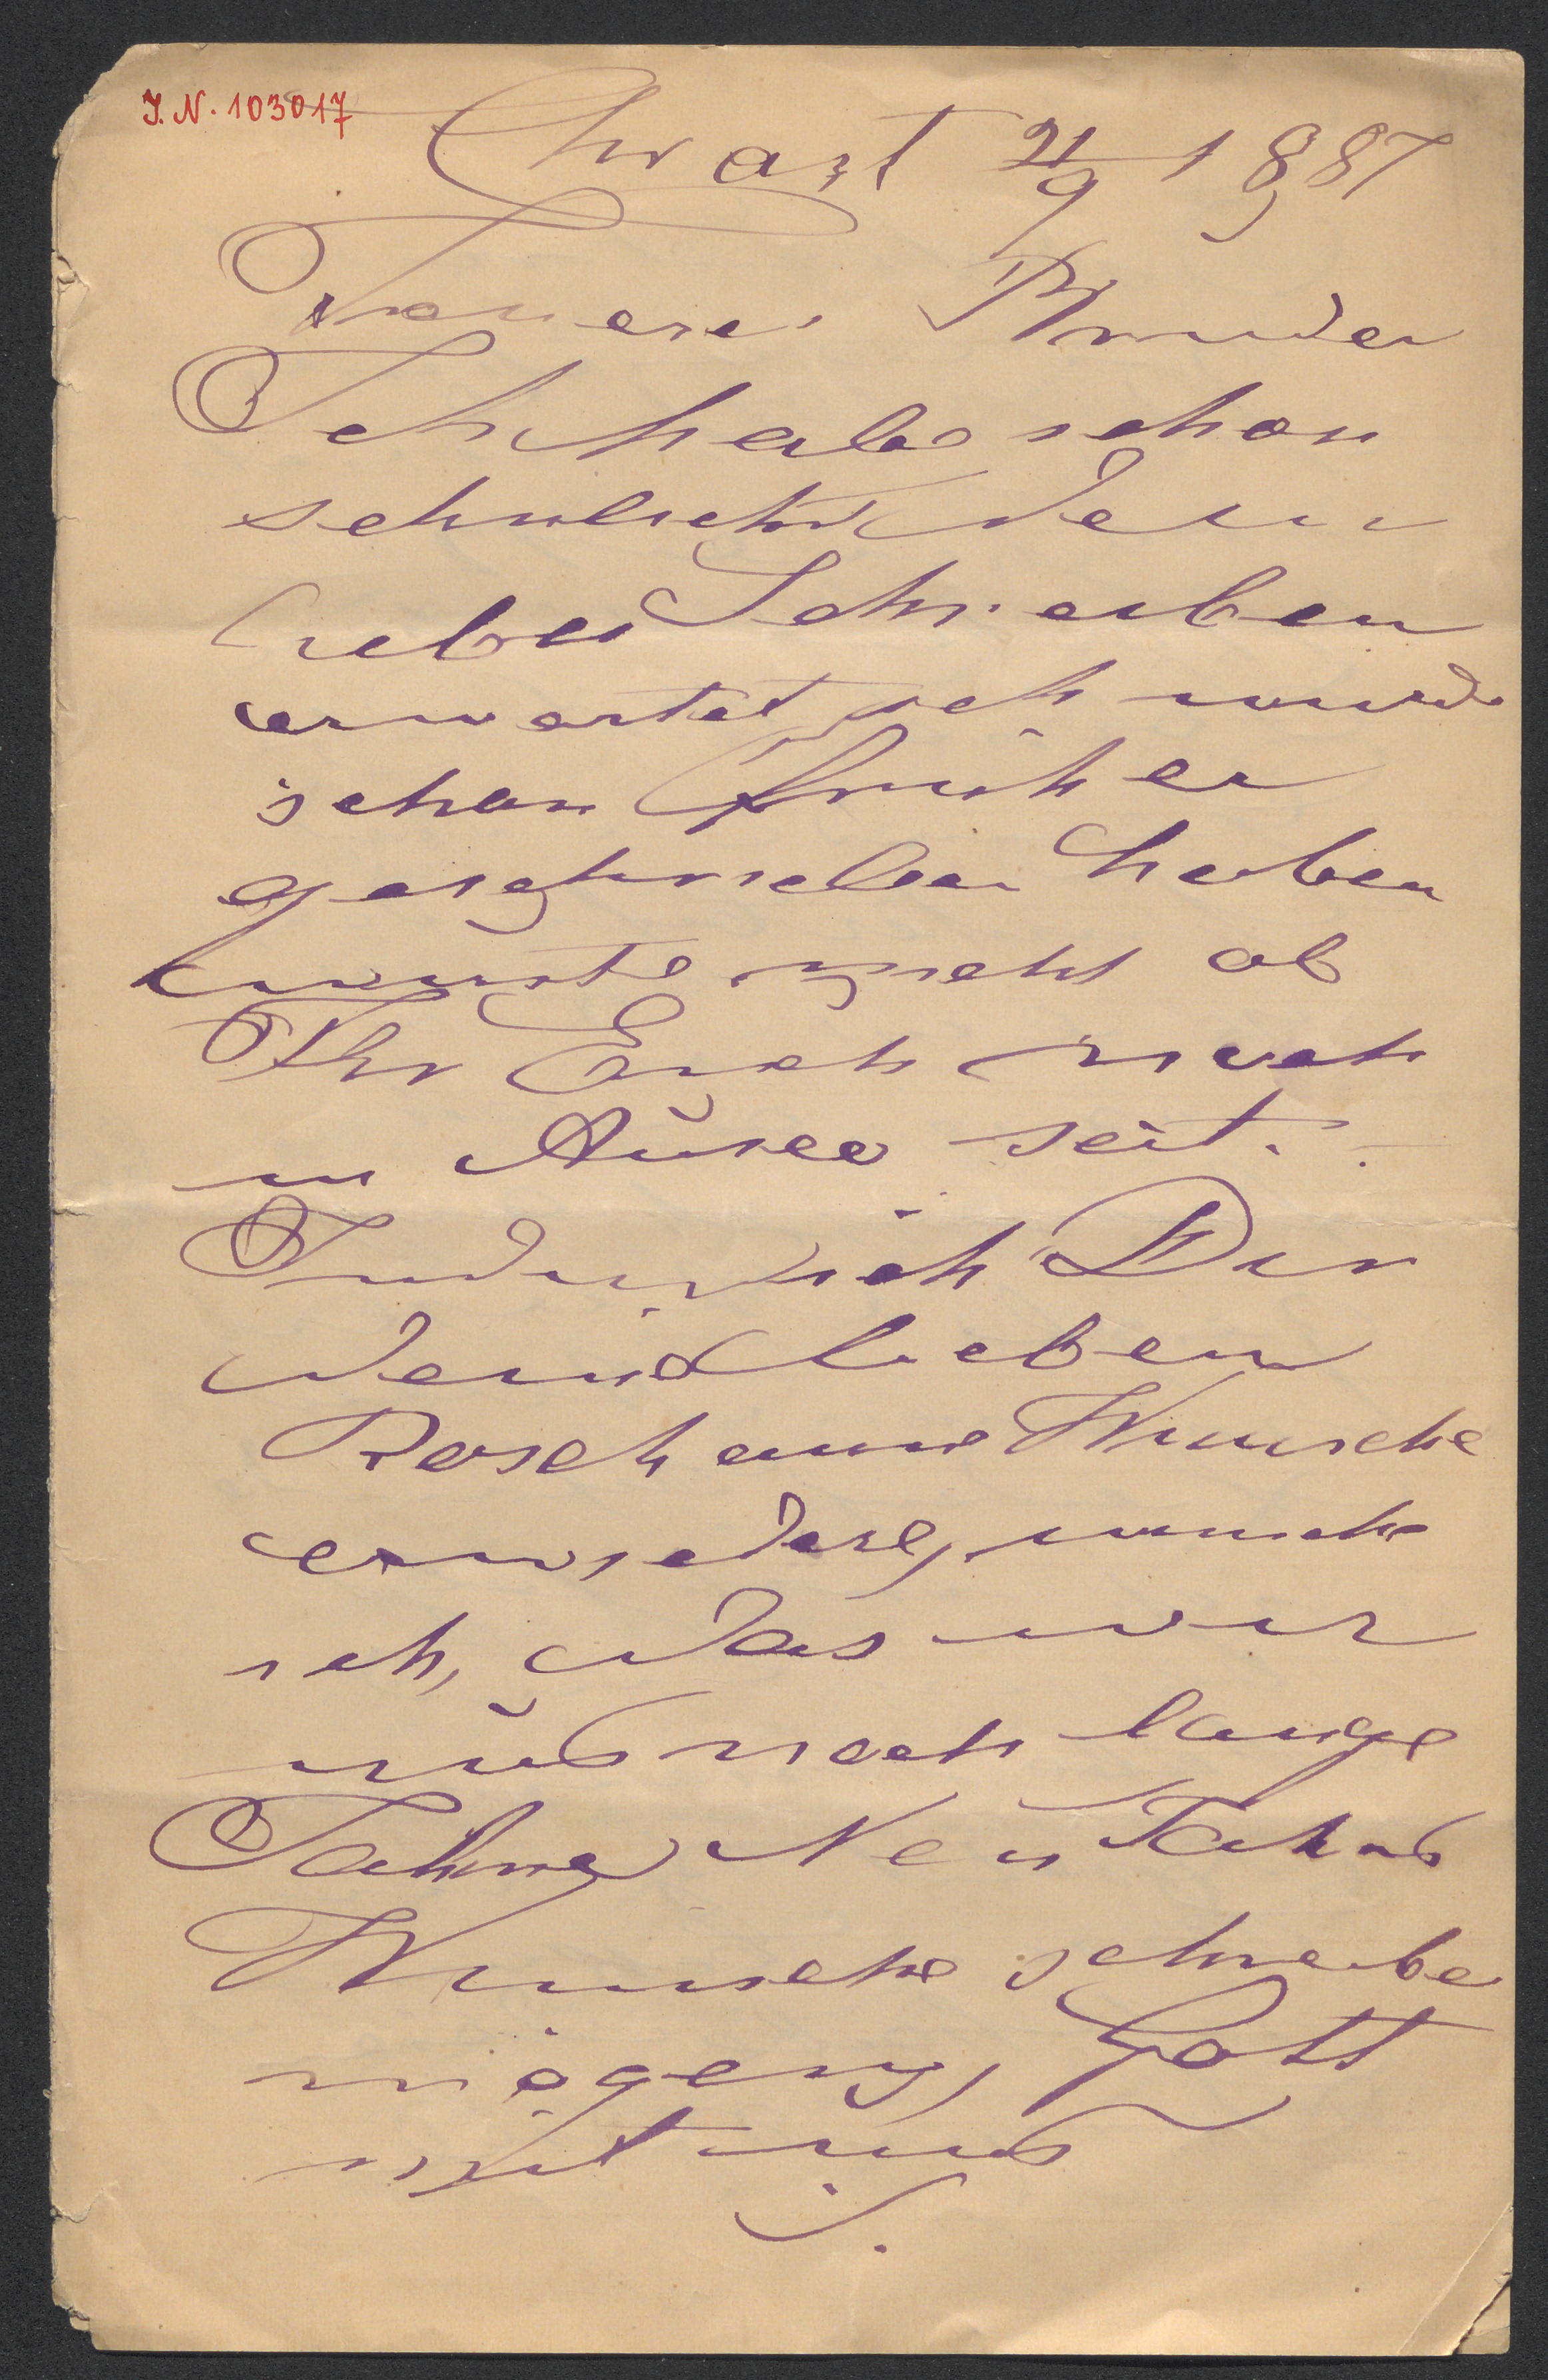 J.N. 103017
Chrast 21/9 1887
Teuerer Bruder
Ich habe schon
sehnlichst dein
liebes Schreiben
erwartet, ich wurde
schon früher
geschrieben haben
wuste nicht ob
Ihr Euch noch
in Aŭsee seit.
Indem ich Dir
deine lieben
Rosch Wunsche
erwiedere, wunsche
ich, das wir
ŭns noch lange
Jahre Neu Jahrs
Wunsche schreibe
mögen, Gott
mit uns